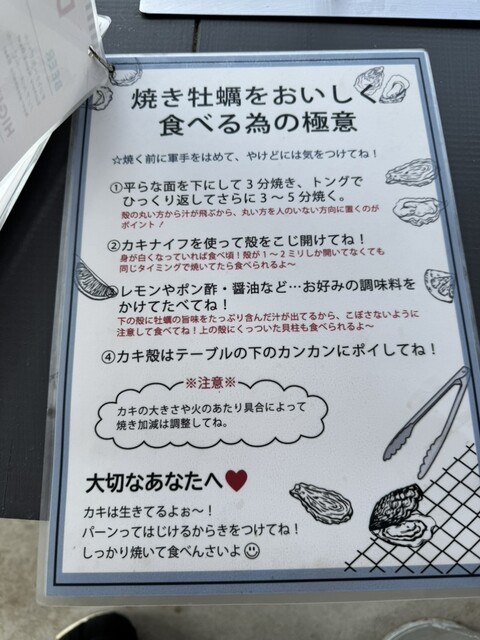 BEER
焼き牡蠣をおいしく
食べる為の極意
☆焼く前に軍手をはめて、やけどには気をつけてね！
①平らな面を下にして3分焼き、トングで
ひっくり返してさらに3～5分焼く。
殻の丸い方から汁が飛ぶから、丸い方を人のいない方向に置くのが
ポイント！
②カキナイフを使って殻をこじ開けてね！
身が白くなっていれば食べ頃！殻が1～2ミリしか開いてなくても
同じタイミングで焼いてたら食べられるよ～
レモンやポン酢・醤油など…お好みの調味料を
かけてたべてね！
下の殻に牡蠣の旨味をたっぷり含んだ汁が出てるから、こぼさないように
注意して食べてね！上の殻にくっついた貝柱も食べられるよ～
④カキ殻はテーブルの下のカンカンにポイしてね！
※注意※
カキの大きさや火のあたり具合によって
焼き加減は調整してね。
大切なあなたへ♥
カキは生きてるよぉ～！
パーンってはじけるからきをつけてね！
しっかり焼いて食べんさいよ☺